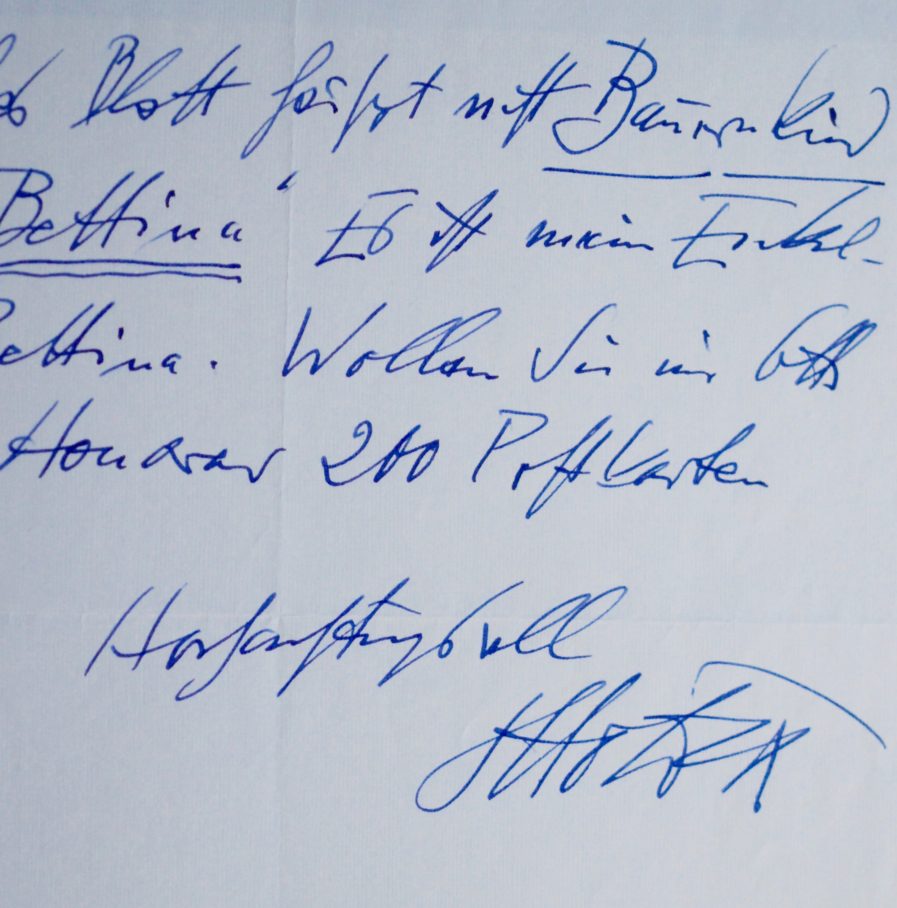 Blatt heißt nicht Bauernkind
Bettina“ Es ist mein Enkel-
Bettina. Wollen Sie mir
Honorar 200 Postkarten
Hochachtungsvoll